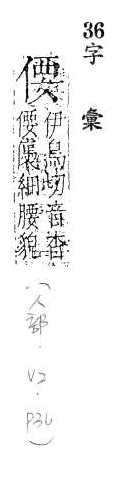 36
字彙
僾
伊鳥切音杳
偠𠌯細腰貌
(人部.
V2
.
P36)